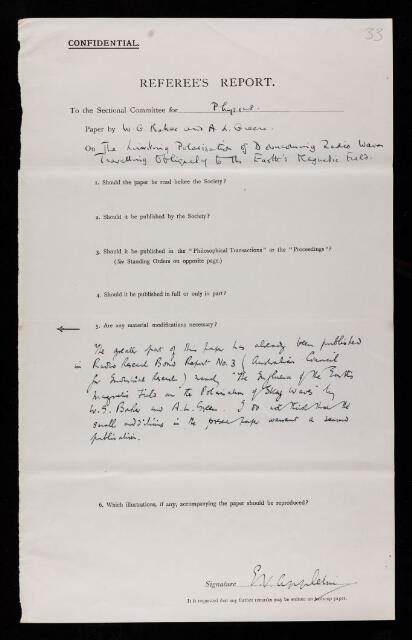 33
CONFIDENTIAL.
REFEREE'S REPORT.
To the Sectional Committee for Physics.
Paper by W G Baker and A. L. Green.
On The Limiting Polarization of Downcoming Radio Waves
Travelling Obliquely to the Earth's Magnetic Field.
1. Should the paper be read before the Society?
2. Should it be published by the Society?
3. Should it be published in the "Philosophical Transactions" or the "Proceedings"?
(See Standing Orders on opposite page.)
4. Should it be published in full or only in part?
5. Are any material modifications necessary?
The greater part of this paper has already been published
in Radio Research Board Report No. 3 (Australian Council
for Industrial Research) namely "The Influence of the Earth's
Magnetic Field on the Polarisation of Sky Waves" by
W.G. Baker and A.L. Green. I do not think that the
small additions in the present paper warrant a second
publication.
6. Which illustrations, if any, accompanying the paper should be reproduced?
Signature E. V. Appleton
It is requested that any further remarks may be written on paper.